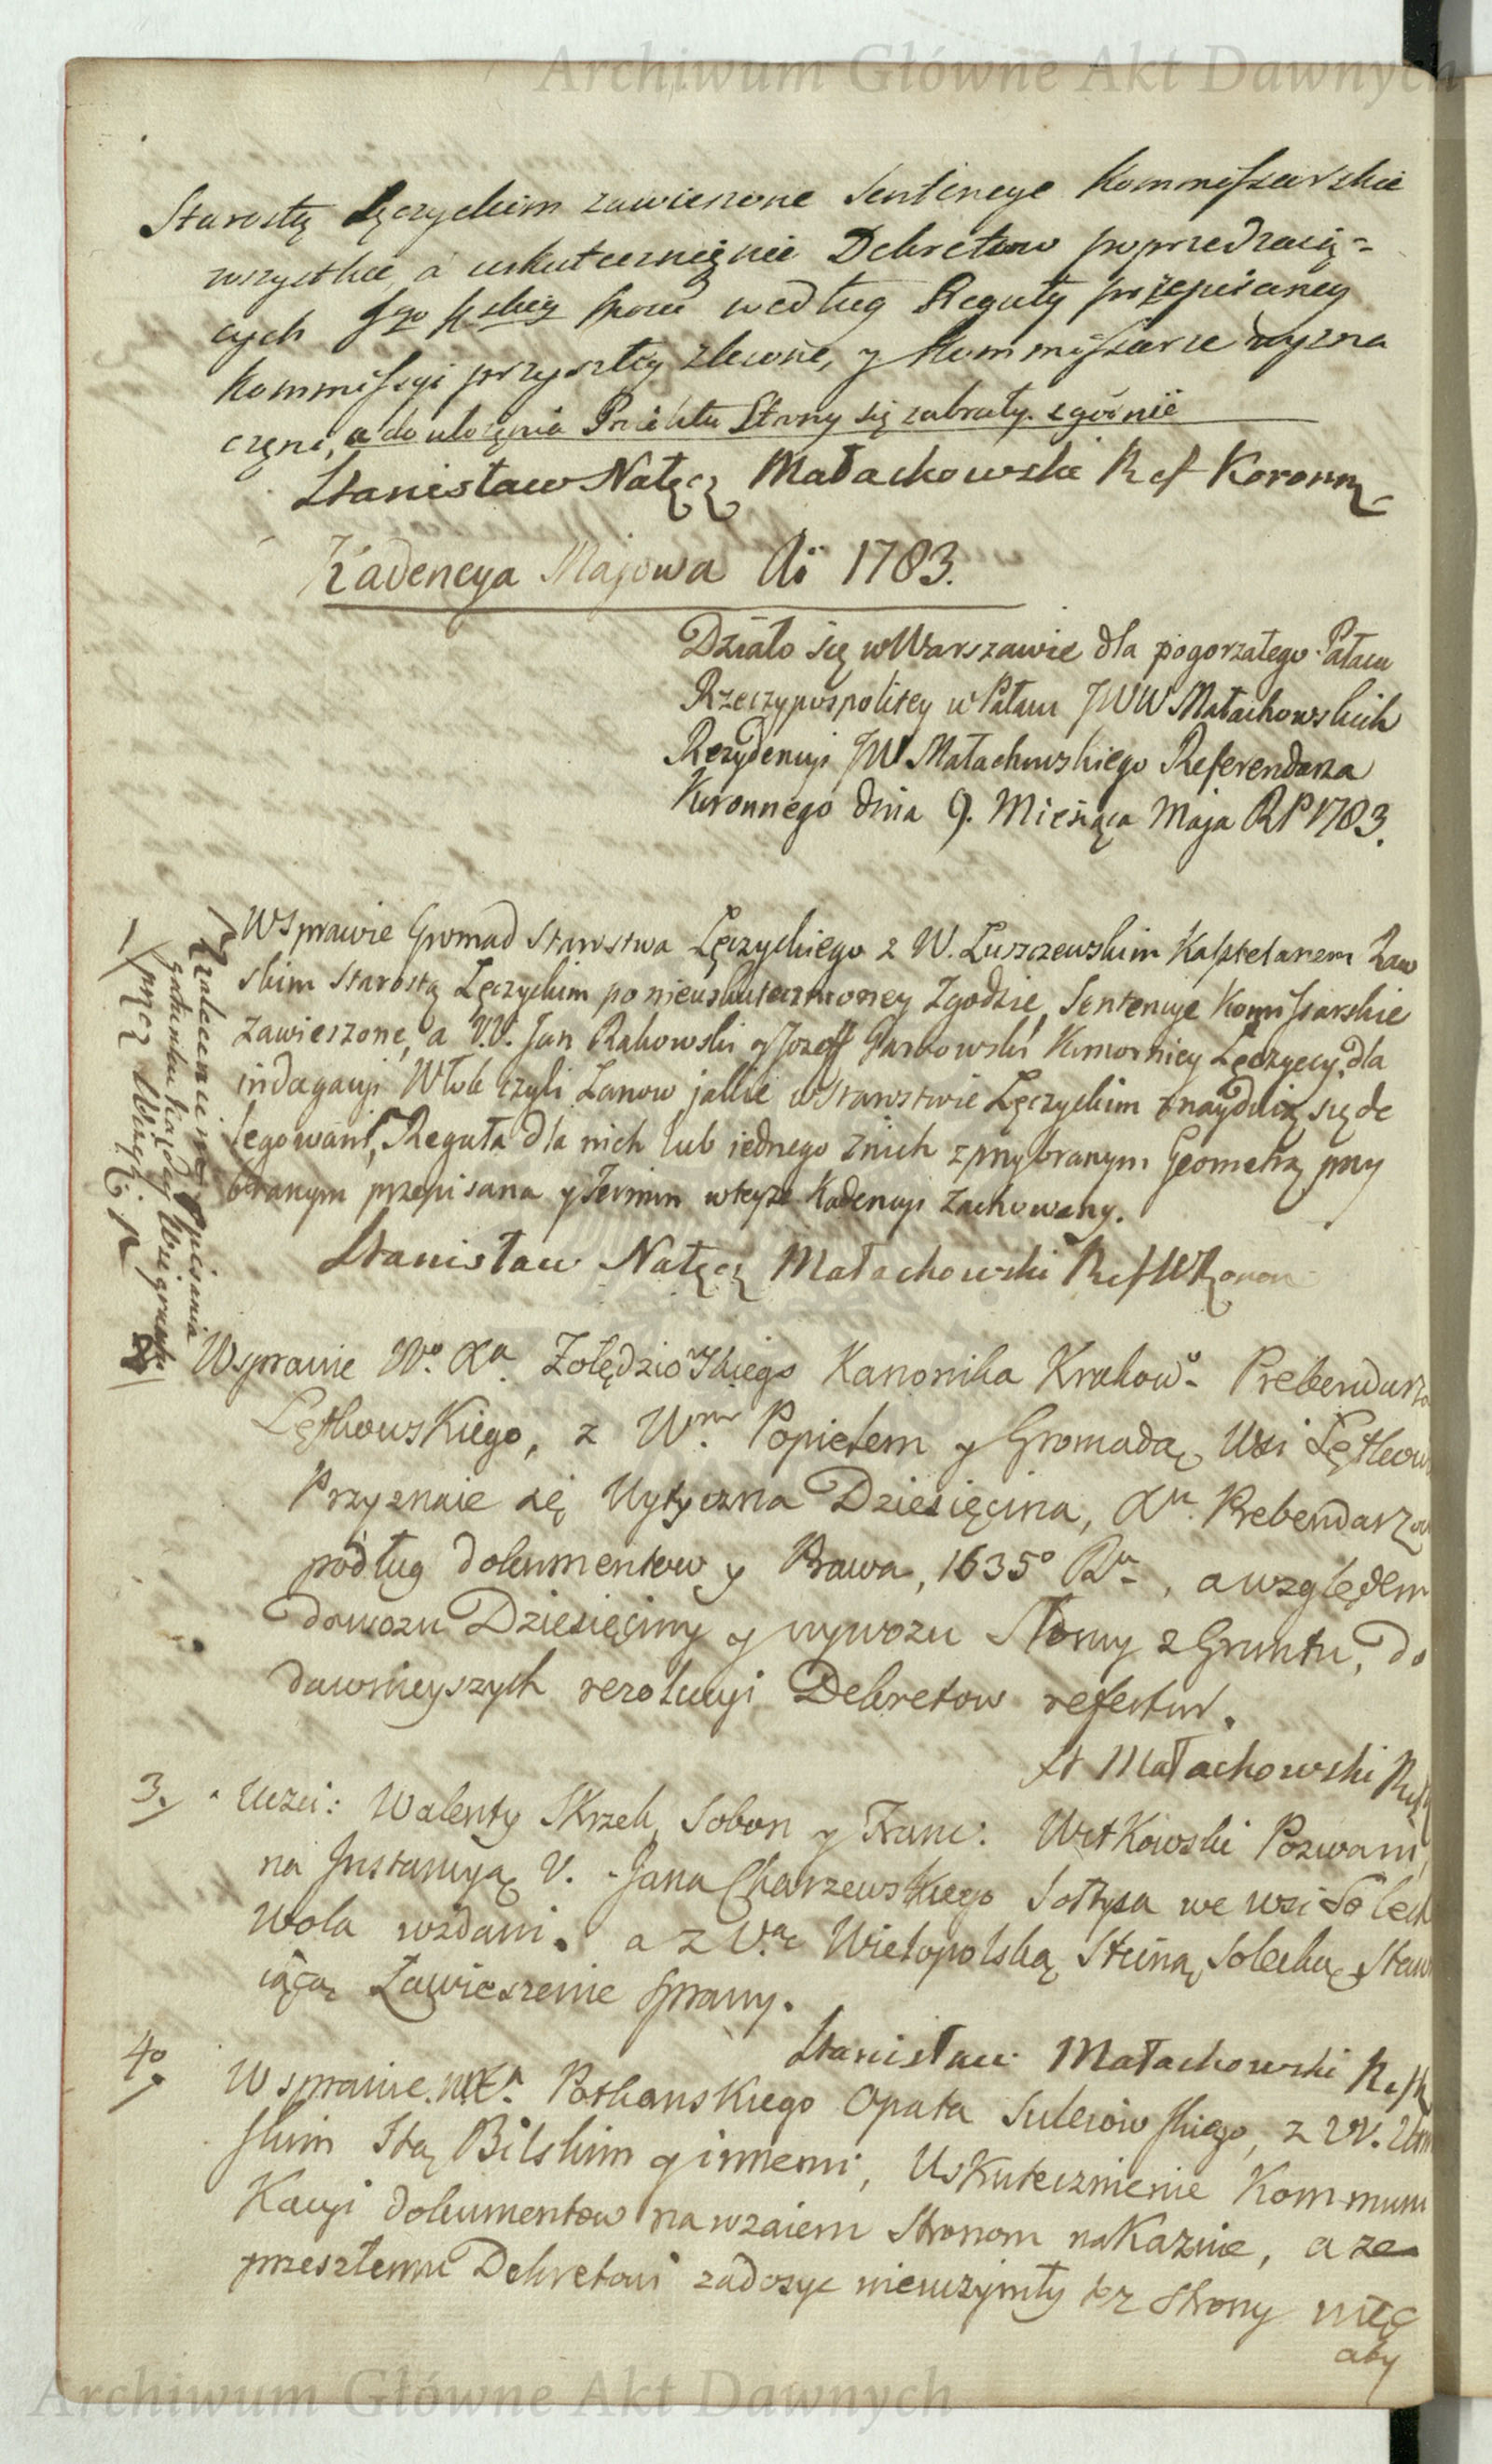 Archiwum Główne Akt Dawnych
Starostę Łęczyckim zawieszone Sentencye Kommissarskie
wszystkie, a uskutecznienie Dekretow poprzedzaią=
cych według Reguły przepisaney
Kommissyi przyszłey zlecone, y Kommissarze wyzna
czeni, a do ułożenia Proiektu Strony się zabrały. zgodnie
Stanisław Nałęcz Małachowski Ref Koronny
Kadencya Majowa Ai 1783.
Działo się w Warszawie dla pogorzałego Pałacu
Rzeczypospolitey w Pałacu JWW Małachowskich
Rezydencyi JW Małachowskiego Referendarza
Koronnego dnia 9. Miesiąca Maja RP 1783.
1/
W Sprawie Gromad Starostwa Łęczyckiego z W. Łuszczewskim Kasztelanem Raw
skim Starostą Łęczyckim po nieuskutecznioney Zgodzie, Sentencye Komissarskie
zawieszone, a V.V. Jan Rakowski y Jozeff Komornicy Łęczyccy, dla
indagacyi Włok czyli Łanow jakie w Starostwie Łęczyckim znayduią się de
legowani, Reguła dla nich lub iednego z nich z przybranym Geometrą przy
branym przepisana y Termin w teyże Kadencyi zachowany.
z zaleceniem opisania
gatunku każdey Wsi gruntu
przez
Stanisław Nałęcz Małachowski Ref WKoron
2
W sprawie Wo. Xa. Żołędziowskiego Kanonika Krakow. Prebendarza
Łętkowskiego, z Wm. Popielem y Gromadą Wsi Łętkow
Przyznaie się Wytyczna Dziesięcina, Xu. Prebendarzowi
podług dokumentow y Prawa, 1635o Ru., a względem
dowozu Dziesięciny y wywozu Słomy z Gruntu, do
dawnieyszych rezolucyi Dekretow refertur.
St Małachowski Ref
3.
Uczci: Walenty Skrzek, Sobon y Franc: Witkowski Pozwani,
na Instancyą V. Jana Charzewskiego Sołtysa we wsi Solech
Wola wzdani. a z V. Wielopolską Stciną Solecką, Stawa
iącą Zawieszenie sprawy.
Stanisław Małachowski Ref K
4o
W sprawie Opata Sulejowskiego, z W.
skim Stą Bilskim y innemi, Uskutecznienie Kommuni
kacyi dokumentow nawzaiem Stronom nakazuie, a ze
przeszłemu Dekretowi zadosyc nieuczyniły też Strony więc
aby
Archiwum Główne Akt Dawnych